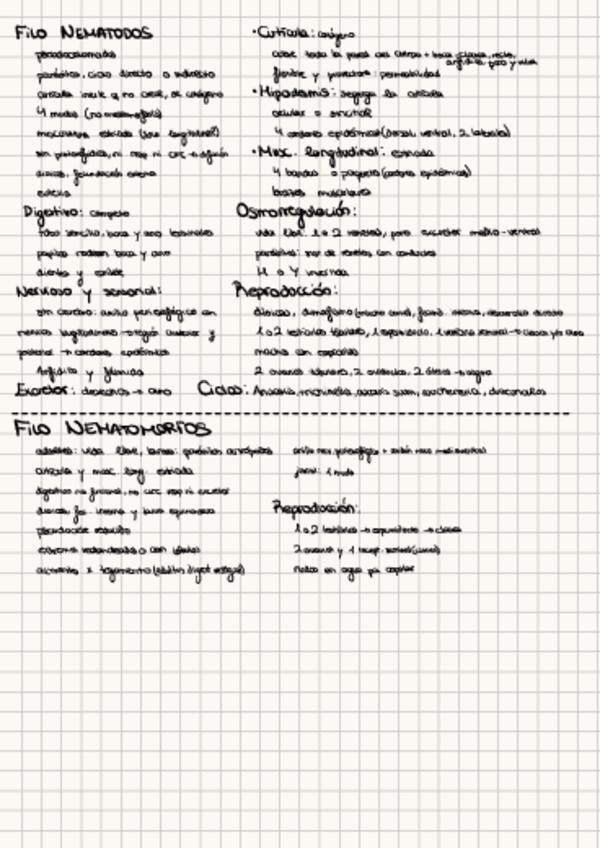 FILO NEMATODOS
pseudocelomados
parásitos, ciclo directo o indirecto
cutícula inerte q no crece, de colágeno
4 mudas
musculatura estriada (solo longitudinal)
sin protonefridios, ni resp ni circ → difusión
dioicos, fecundación interna
eutelia
Digestivo: completo
tubo sencillo, boca y ano terminales
papilas rodean boca y ano
dientes y
Nervioso y sensorial:
sin cerebro: anillo periesofágico con
nervios longitudinales → región anterior y
posterior → cordones epidérmicos
Anfidios y fásmidos
Excretor: desechos → ano
• Cutícula: colágeno
cubre toda la pared del cuerpo + boca, cloaca, recto,
flexible y protectora: permeabilidad
• Hipodermis: segrega la cutícula
celular o sincitial
4 cordones epidérmicos (dorsal, ventral, 2 laterales)
• Musc. longitudinal: estriada
4 bandas o paquetes (cordones epidérmicos)
brazos musculares
Osmorregulación:
vida libre: 1 o 2 renetes, poro excretor medio-ventral
parásitos: par de renetes con conductos
H o Y invertida
Reproducción:
dioicos, dimorfismo, fecund. interna, desarrollo directo
1 o 2 testículos tubulares, 1 espermiducto, 1 vesícula seminal → cloaca y/o ano
macho con espículas
2 ovarios tubulares, 2 oviductos, 2 úteros → vagina
Ciclos: Anisakis, trichinella, ascaris suum, wuchereria, dracunculus
FILO NEMATOMORFOS
adultos: vida libre, larvas: parásitos artrópodos
cutícula y musc. long. estriada
digestivo no funcional, no circ resp ni excretor
dioicos, fec. interna y larva
pseudoceloma reducido
extremos redondeados o con lóbulos
alimento x tegumento
anillo nerv. periesofágico + cordón nerv. medioventral
juvenil: 1 muda
Reproducción:
1 o 2 testículos → espermiducto → cloaca
2 ovarios y 1 recep. seminal
nudos en agua pa copular